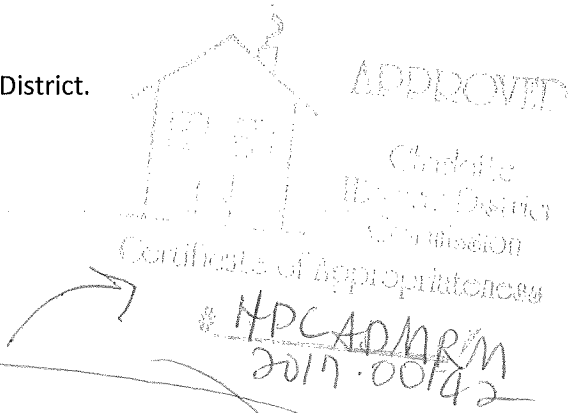 District.
APPROVED
Charlotte
Historic District
Commission
Certificate of Appropriateness
# HPCADMRM
2017.00142